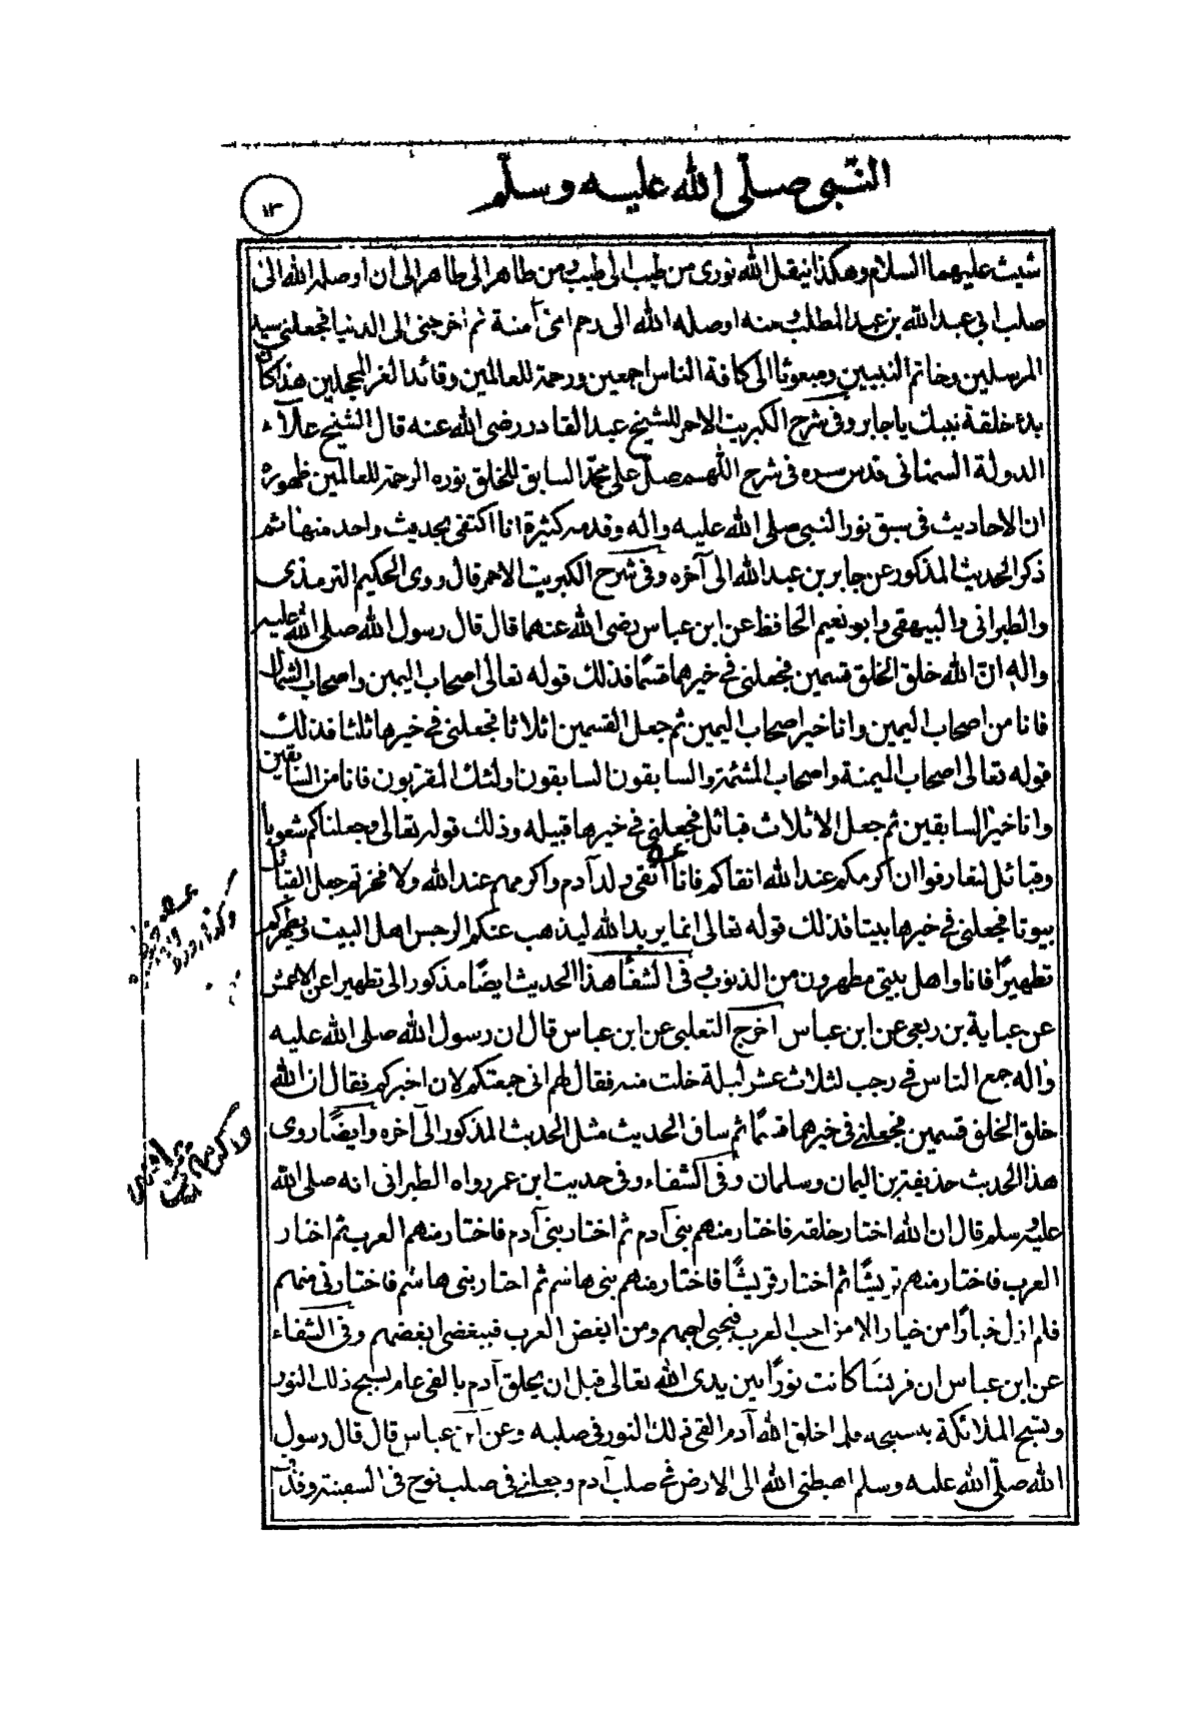 النّبى صلّى الله عليه وسلّم
١٣
شيث عليهما السلام وهكذا ينقل الله نورى من طيب الى طيب ومن طاهر الى طاهر الى ان اوصله الله الى
صلب ابى عبد الله بن عبد المطلب ومنه اوصله الله الى رحم امى آمنة ثم اخرجنى الى الدنيا فجعلنى سيد
المرسلين وخاتم النبيين ومبعوثا الى كافة الناس اجمعين ورحمة للعالمين وقائد الغر المحجلين هذا كان
بدء خلقة نبيك يا جابر وفى شرح الكبريت الاحمر للشيخ عبد القادر رضى الله عنه قال الشيخ علآء
الدولة السمنانى قدس سره فى شرح اللهم صل على محمد السابق للخلق نوره الرحمة للعالمين ظهوره
ان الاحاديث فى سبق نور النبى صلى الله عليه واله وقدمه كثيرة انا اكتفى بحديث واحد منها ثم
ذكر الحديث المذكور عن جابر بن عبد الله الى آخره وفى شرح الكبريت الاحمر قال روى الحكيم الترمذى
والطبرانى والبيهقى وابو نعيم الحافظ عن ابن عباس رضى الله عنهما قال قال رسول الله صلى الله عليه
واله ان الله خلق الخلق قسمين فجعلنى فى خيرهما قسمًا فذلك قوله تعالى اصحاب اليمين واصحاب الشمال
فانا من اصحاب اليمين وانا خير اصحاب اليمين ثم جعل القسمين اثلاثا فجعلنى فى خيرها ثلثا فذلك
قوله تعالى اصحاب الميمنة واصحاب المشئمة والسابقون السابقون اولئك المقربون فانا من السابقين
وانا خير السابقين ثم جعل الاثلاث قبائل فجعلنى فى خيرها قبيله وذلك قوله تعالى وجعلناكم شعوبا
وقبائل لتعارفوا ان اكرمكم عند الله اتقاكم فانا اتقى ولد آدم واكرمهم عند الله ولا فخر ثم جعل القبائل
بيوتا فجعلنى فى خيرها بيتا فذلك قوله تعالى انما يريد الله ليذهب عنكم الرجس اهل البيت ويطهركم
تطهيرًا فانا واهل بيتى مطهرون من الذنوب فى الشفا هذا الحديث ايضًا مذكور الى تطهيرا عن الاعمش
عن عباية بن ربعى عن ابن عباس اخرج الثعلبى عن ابن عباس قال ان رسول الله صلى الله عليه
واله جمع الناس فى رجب لثلاث عشر ليلة خلت منه فقال لهم انى جمعتكم لان اخبركم فقال ان الله
خلق الخلق قسمين فجعلنى فى خيرهما قسمًا ثم ساق الحديث مثل الحديث المذكور الى آخره وايضًا روى
هذا الحديث حذيفة بن اليمان وسلمان وفى الشفاء وفى حديث ابن عمر رواه الطبرانى انه صلى الله
عليه وسلم قال ان الله اختار خلقه فاختار منهم بنى آدم ثم اختار بنى آدم فاختار منهم العرب ثم اختار
العرب فاختار منهم قريشًا ثم اختار قريشًا فاختار منهم بنى هاشم ثم اختار بنى هاشم فاختارنى منهم
فلم ازل خيارًا من خيار الا من احب العرب فبحبى احبهم ومن ابغض العرب فببغضى ابغضهم وفى الشفاء
عن ابن عباس ان قريشًا كانت نورًا بين يدى الله تعالى قبل ان يخلق آدم بالفى عام يسبح ذلك النور
وتسبح الملائكة بتسبيحه فلما خلق الله آدم القى ذلك النور فى صلبه وعن ابن عباس قال قال رسول
الله صلّى الله عليه وسلم اهبطنى الله الى الارض فى صلب آدم وجعلنى فى صلب نوح فى السفينة وقذف